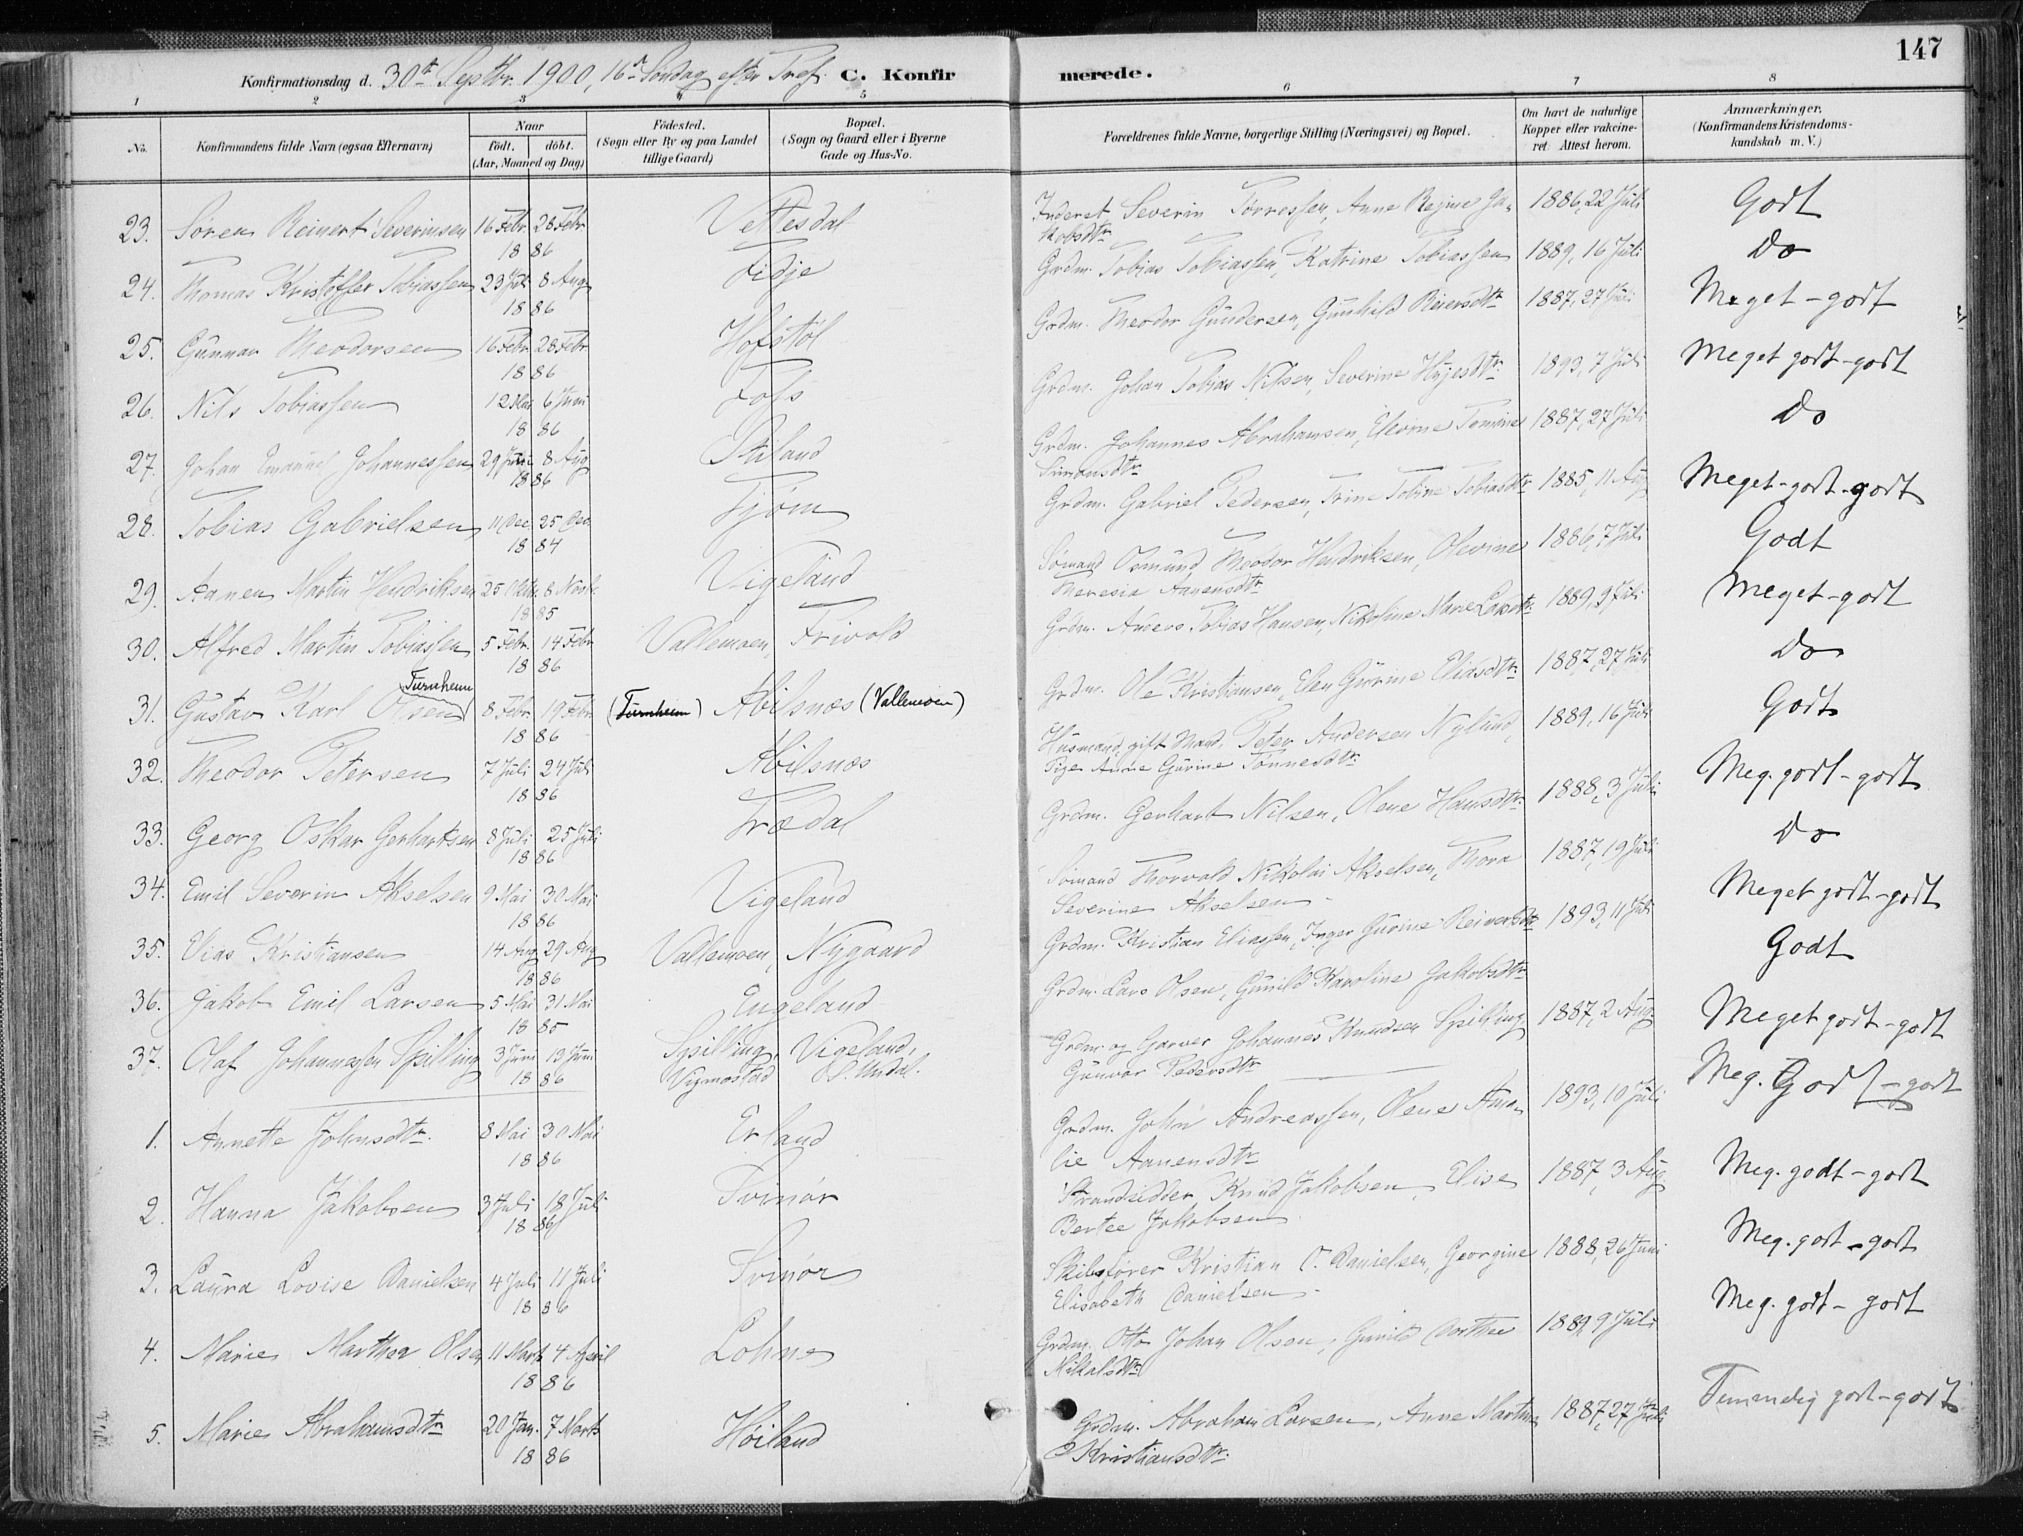 147
Konfirmationsdag d. 30te Septbr. 1900, 16n Søndag efter Tref. C. Konfirmerede.
1 2 3 4 5 6 7 8
No. Konfirmandens fulde Navn (ogsaa Efternavn) Naar født. døbt. (Aar, Maaned og Dag) Fødested. (Sogn eller By og paa Landet tillige Gaard) Bopæl. (Sogn og Gaard eller i Byerne Gade og Hus-No. Forældrenes fulde Navne, borgerlige Stilling (Næringsvei) og Bopæl. Om havt de naturlige Kopper eller vakcineret: Attest herom. Anmærkninger. (Konfirmandens Kristendomskundskab m. V.)
23. Søren Reinert Severinsen 16 Febr. 28 Febr. 1886 Vettesdal Inderst Severin Tørressen, Anne Regine Jakobsdtr 1886, 22 Juli Godt
24. Thomas Kristoffer Tobiassen 23 Juli 8 Aug 1886 Fidje Grdm. Tobias Tobiassen, Katrine Tobiassen 1889, 16 Juli Do
25. Gunnar Theodorsen 16 Febr. 28 Febr. 1886 Hofstøl Grdm. Theodor Gundersen, Gunhild Reiersdtr 1887, 27 Juli Meget-godt
26. Nils Tobiassen 12 Mai 6 Juni 1886 Foss Grdm. Johan Tobias Nilsen, Severine 1893, 7 Juli Meget godt-godt
27. Johan Emanuel Johannessen 29 Juni 8 Aug 1886 Grdm. Johannes Abrahamsen, Elevine Tomine Simonsdtr 1887, 27 Juli Do
28. Tobias Gabrielsen 11 Dec. 25 Dec. 1884 Tjøm Grdm. Gabriel Pedersen, Trine Tobine Tobiasdtr 1885, 11 Aug Meget-godt-godt
29. Aanen Martin Hendriksen 25 Oktr. 8 Novbr. 1885 Vigeland Sømand Osmund Theodor Hendriksen, Olevine Theresia Aanensdtr 1886, 7 Juli Godt
30. Alfred Martin Tobiassen 5 Febr. 14 Febr. 1886 Vallemoen, Frivold Grdm. Anders Tobias Hansen, Nikoline Marie Larsdtr. 1889, 9 Juli Meget-godt
31. Gustav Karl Olsen Turnheim 8 Febr. 19 Febr. 1886 (Turnheim) Abilsnæs (Vallemoen) Grdm. Ole Kristiansen, Elen Gurine Eliasdtr. 1887, 27 Juli Do
32. Theodor Petersen 7 Juli 24 Juli 1886 Abilsnæs Husmand, gift Mand, Peter Andersen Nylund, Pige Anne Gurine Tønnesdtr. 1889, 16 Juli Godt
33. Georg Oskar Gerhartsen 8 Juli 25 Juli 1886 Trædal Grdm. Gerhart Nilsen, Olene Hansdtr. 1888, 3 Juli Meg. godt-godt
34. Emil Severin Akselsen 9 Mai 30 Mai 1886 Vigeland Sømand Thorvald Nikolai Akselsen, Thora Severine Akselsen 1887, 19 Juli Do
35. Elias Kristiansen 14 Aug 29 Aug 1886 Vallemoen, Nygaard Grdm. Kristian Eliassen, Inger Gurine Reinertsdtr 1893, 11 Juli Meget godt-godt
36. Jakob Emil Larsen 5 Mai 31 Mai 1885 Engeland Grdm. Lars Olsen, Gunild Karoline Jakobsdtr Godt
37. Olaf Johannessen Spilling 3 Juni 13 Juni 1886 Spilling, Vigmostad Vigeland, S. Undal. Grdm. og Garver Johannes Knudsen Spilling, Gunvor Pedersdtr 1887, 2 Aug Meget godt-godt
1. Annette Johnsdtr. 8 Mai 30 Mai 1886 Erland Grdm. John Andreassen, Olene Amalie Aanensdtr 1893, 10 Juli Meg. Godt-godt
2. Hanna Jakobsen 3 Juli 18 Juli 1886 Svinør Strandsidder Knud Jakobsen, Elise Bertee Jakobsen 1887, 3 Aug. Meg. godt-godt
3. Laura Lovise Danielsen 4 Juli 11 Juli 1886 Svinør Skibsfører Kristian O. Danielsen, Georgine Elisabeth Danielsen 1888, 26 Juni Meg. godt-godt
4. Marie Marthea Olsen 11 Marts 4 April 1886 Lohne Grdm. Otto Johan Olsen, Gunild Dorthee Nikalsdtr. 1889, 9 Juli Meg. godt-godt
5. Marie Abrahamsdtr 20 Jan. 7 Marts 1886 Høiland Grdm. Abraham Larsen, Anne Martine Kristiansdtr. 1887, 27 Juli Temmelig godt-godt